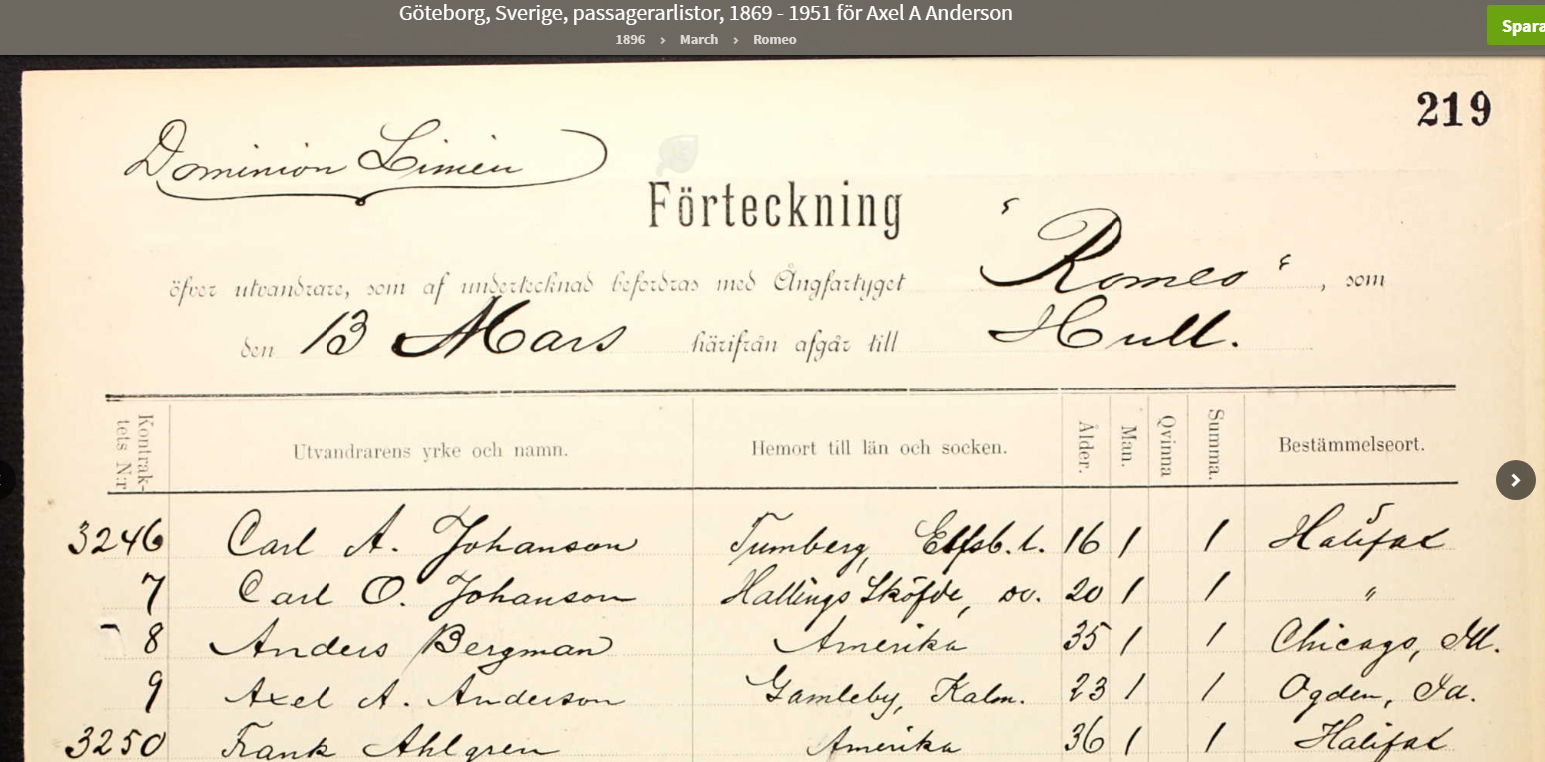 Göteborg, Sverige, passagerarlistor, 1869 - 1951 för Axel A Anderson
1896 › March › Romeo
Spara
219
Dominion Linien
Förteckning
öfver utvandrare, som af undertecknad befordras med Ångfartyget "Romeo", som
den 13 Mars härifrån afgår till Hull.
Kontrak-tets N:r Utvandrarens yrke och namn. Hemort till län och socken. Ålder. Man. Qvinna Summa. Bestämmelseort.
3246 Carl A. Johanson Tumberg, Elfsb. l. 16 1 1 Halifax
7 Carl O. Johanson Hallings Sköfde, do. 20 1 1 "
8 Anders Bergman Amerika 35 1 1 Chicago, Ill.
9 Axel A. Anderson Gamleby, Kalm. 23 1 1 Ogden, Ia.
3250 Frank Ahlgren Amerika 36 1 1 Halifax